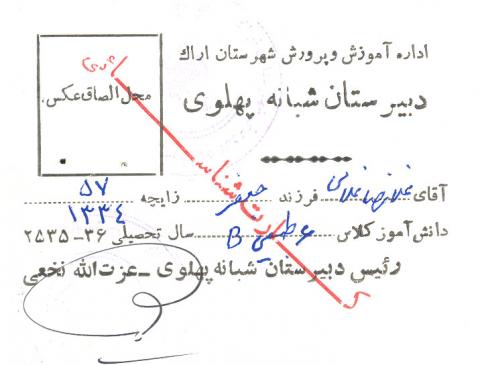 اداره آموزش و پرورش شهرستان اراک
دبیرستان شبانه پهلوی
محل الصاق عکس.
کارت شناسائی
آقای غلامرضا غلامی فرزند جعفر زایچه ۵۷
۱۳۳٤
دانش‌آموز کلاس ۴ طبیعی B سال تحصیلی ۳۶-۲۵۳۵
رئیس دبیرستان شبانه پهلوی - عزت‌الله نخعی